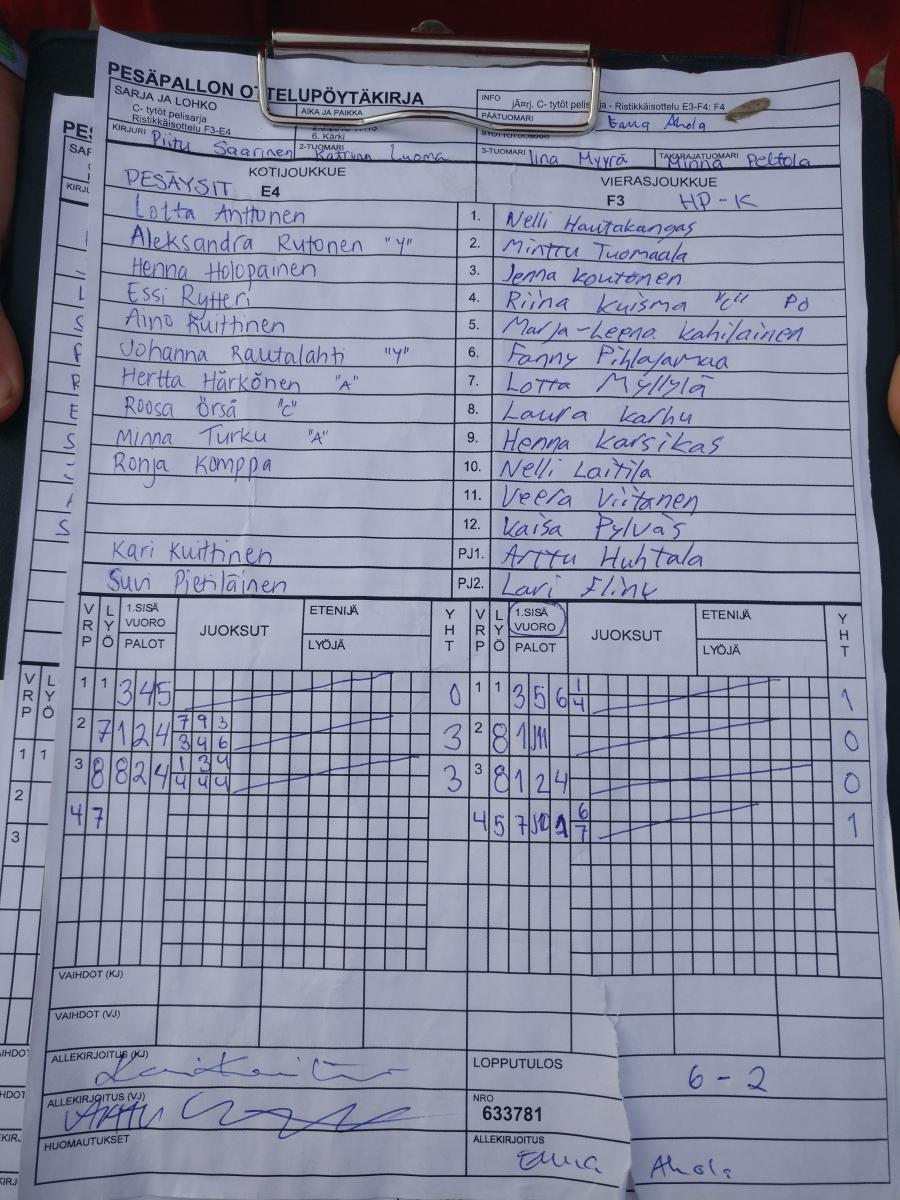 PESÄPALLON OTTELUPÖYTÄKIRJA
SARJA JA LOHKO
C- tytöt pelisarja
Ristikkäisottelu F3-E4
AIKA JA PAIKKA
6. Kärki
INFO
- Ristikkäisottelu E3-F4: F4
PÄÄTUOMARI Emma Ahola
KIRJURI Piitu Saarinen
2-TUOMARI Katriina Luoma
3-TUOMARI Iina Myyrä
TAKARAJATUOMARI Minna Peltola
KOTIJOUKKUE
PESÄYSIT E4
VIERASJOUKKUE
F3 HP-K
Lotta Anttonen 1. Nelli Hautakangas
Aleksandra Rutonen "Y" 2. Minttu Tuomaala
Henna Holopainen 3. Jenna Koutonen
Essi Rytteri 4. Riina Kuisma "C" PO
Aino Kuittinen 5. Marja-Leena Kahilainen
Johanna Rautalahti "Y" 6. Fanny Pihlajamaa
Hertta Härkönen "A" 7. Lotta Myllylä
Roosa Örså "C" 8. Laura Karhu
Minna Turku "A" 9. Henna Karsikas
Ronja Komppa 10. Nelli Laitila
11. Veera Viitanen
12. Kaisa Pylväs
Kari Kuittinen PJ1. Arttu Huhtala
Suvi Pietiläinen PJ2. Lari Flink
VRP LYÖ 1.SISÄ VUORO PALOT JUOKSUT ETENIJÄ LYÖJÄ YHT VRP LYÖ 1.SISÄ VUORO PALOT JUOKSUT ETENIJÄ LYÖJÄ YHT
1 1 3 4 5 0 1 1 3 5 6 1 4 1
2 7 1 2 4 7 9 3 3 4 6 3 2 8 1 0
3 8 8 2 4 1 3 4 4 4 4 3 3 8 1 2 4 0
4 7 4 5 7 1 6 7 1
VAIHDOT (KJ)
VAIHDOT (VJ)
ALLEKIRJOITUS (KJ)
LOPPUTULOS 6 - 2
ALLEKIRJOITUS (VJ) Arttu
NRO
633781
HUOMAUTUKSET
ALLEKIRJOITUS
Emma Ahola